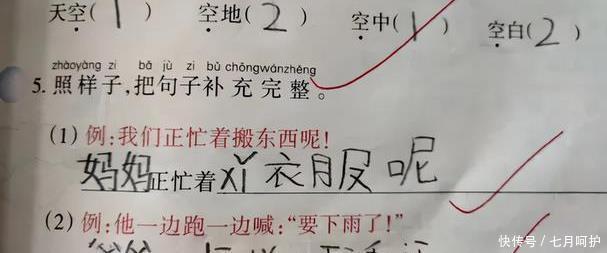 天空(1) 空地(2) 空中(1) 空白(2)
zhàoyàng zi bǎ jù zi bǔ chōngwánzhěng
5.照样子,把句子补充完整。
(1) 例:我们正忙着搬东西呢!
妈妈正忙着 衣服呢
(2) 例:他一边跑一边喊:“要下雨了!”
快传号/七月呵护